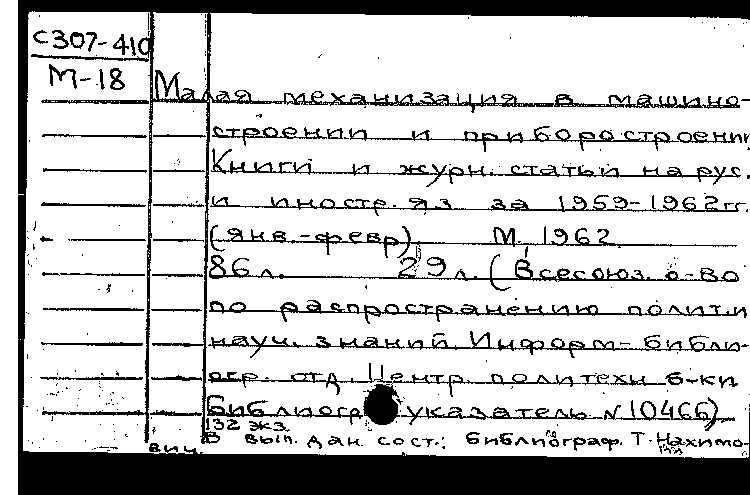 С307-410
М-18
Малая механизация в машино-
строении и приборостроении
Книги и журн. статьи на рус.
и иностр. яз. за 1959-1962 гг.
(янв.-февр). М, 1962.
86 л. 29 л. (Всесоюз. о-во
по распространению полит. и
науч. знаний. Информ-библи-
огр. отд. Центр. политехн б-ки
Библиогр указатель № 10466)
132 экз.
В вып. дан. сост.: библиограф. Т. Нахимо-